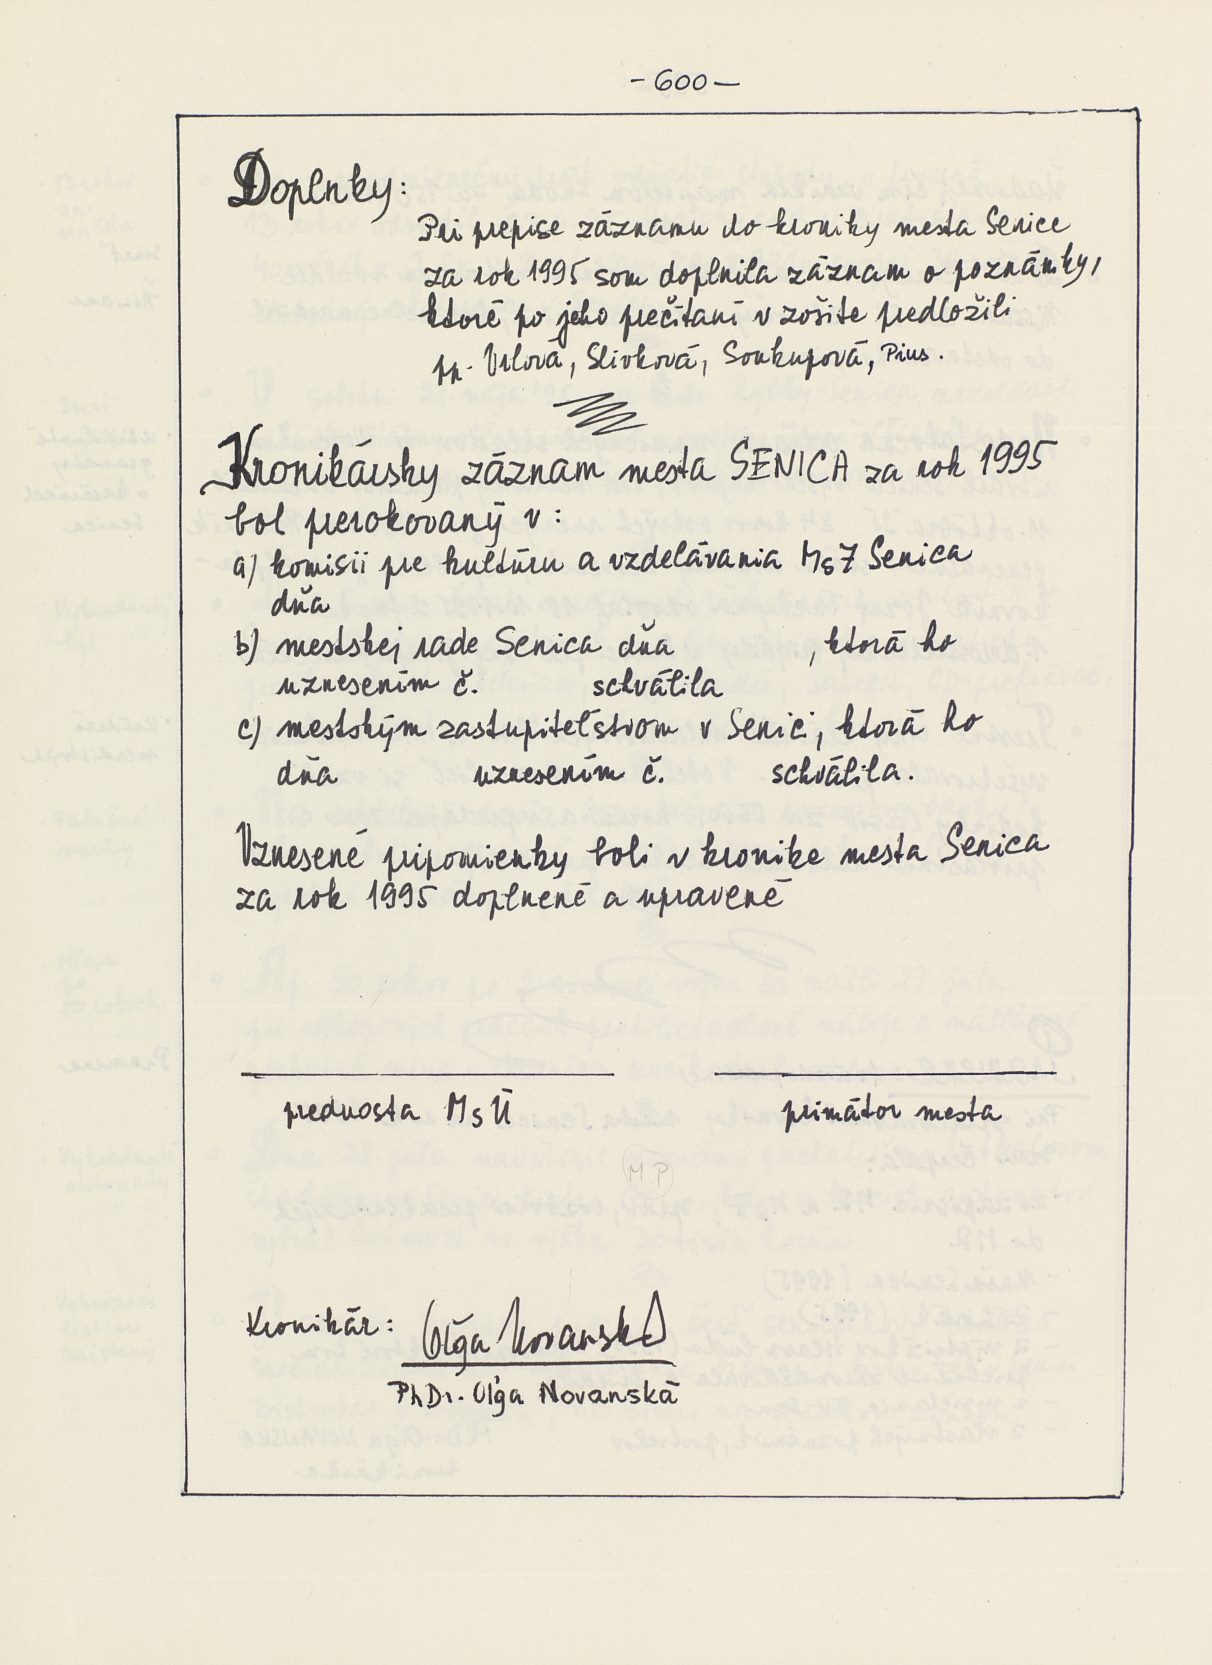 - 600 -
Doplnky:
Pri prepise záznamu do kroniky mesta Senice
za rok 1995 som doplnila záznam o poznámky,
ktoré po jeho prečítaní v zošite predložili
pp. Vrlová, Slivková, Soukupová, Pius.
Kronikársky záznam mesta SENICA za rok 1995
bol prerokovaný v:
a) komisii pre kultúru a vzdelávania MsZ Senica
dňa
b) mestskej rade Senica dňa , ktorá ho
uznesením č. schválila
c) mestským zastupiteľstvom v Senici, ktorá ho
dňa uznesením č. schválila.
Vznesené pripomienky boli v kronike mesta Senica
za rok 1995 doplnené a upravené
prednosta MsÚ primátor mesta
MP
Kronikár: Oľga Novanská
PhDr. Oľga Novanská